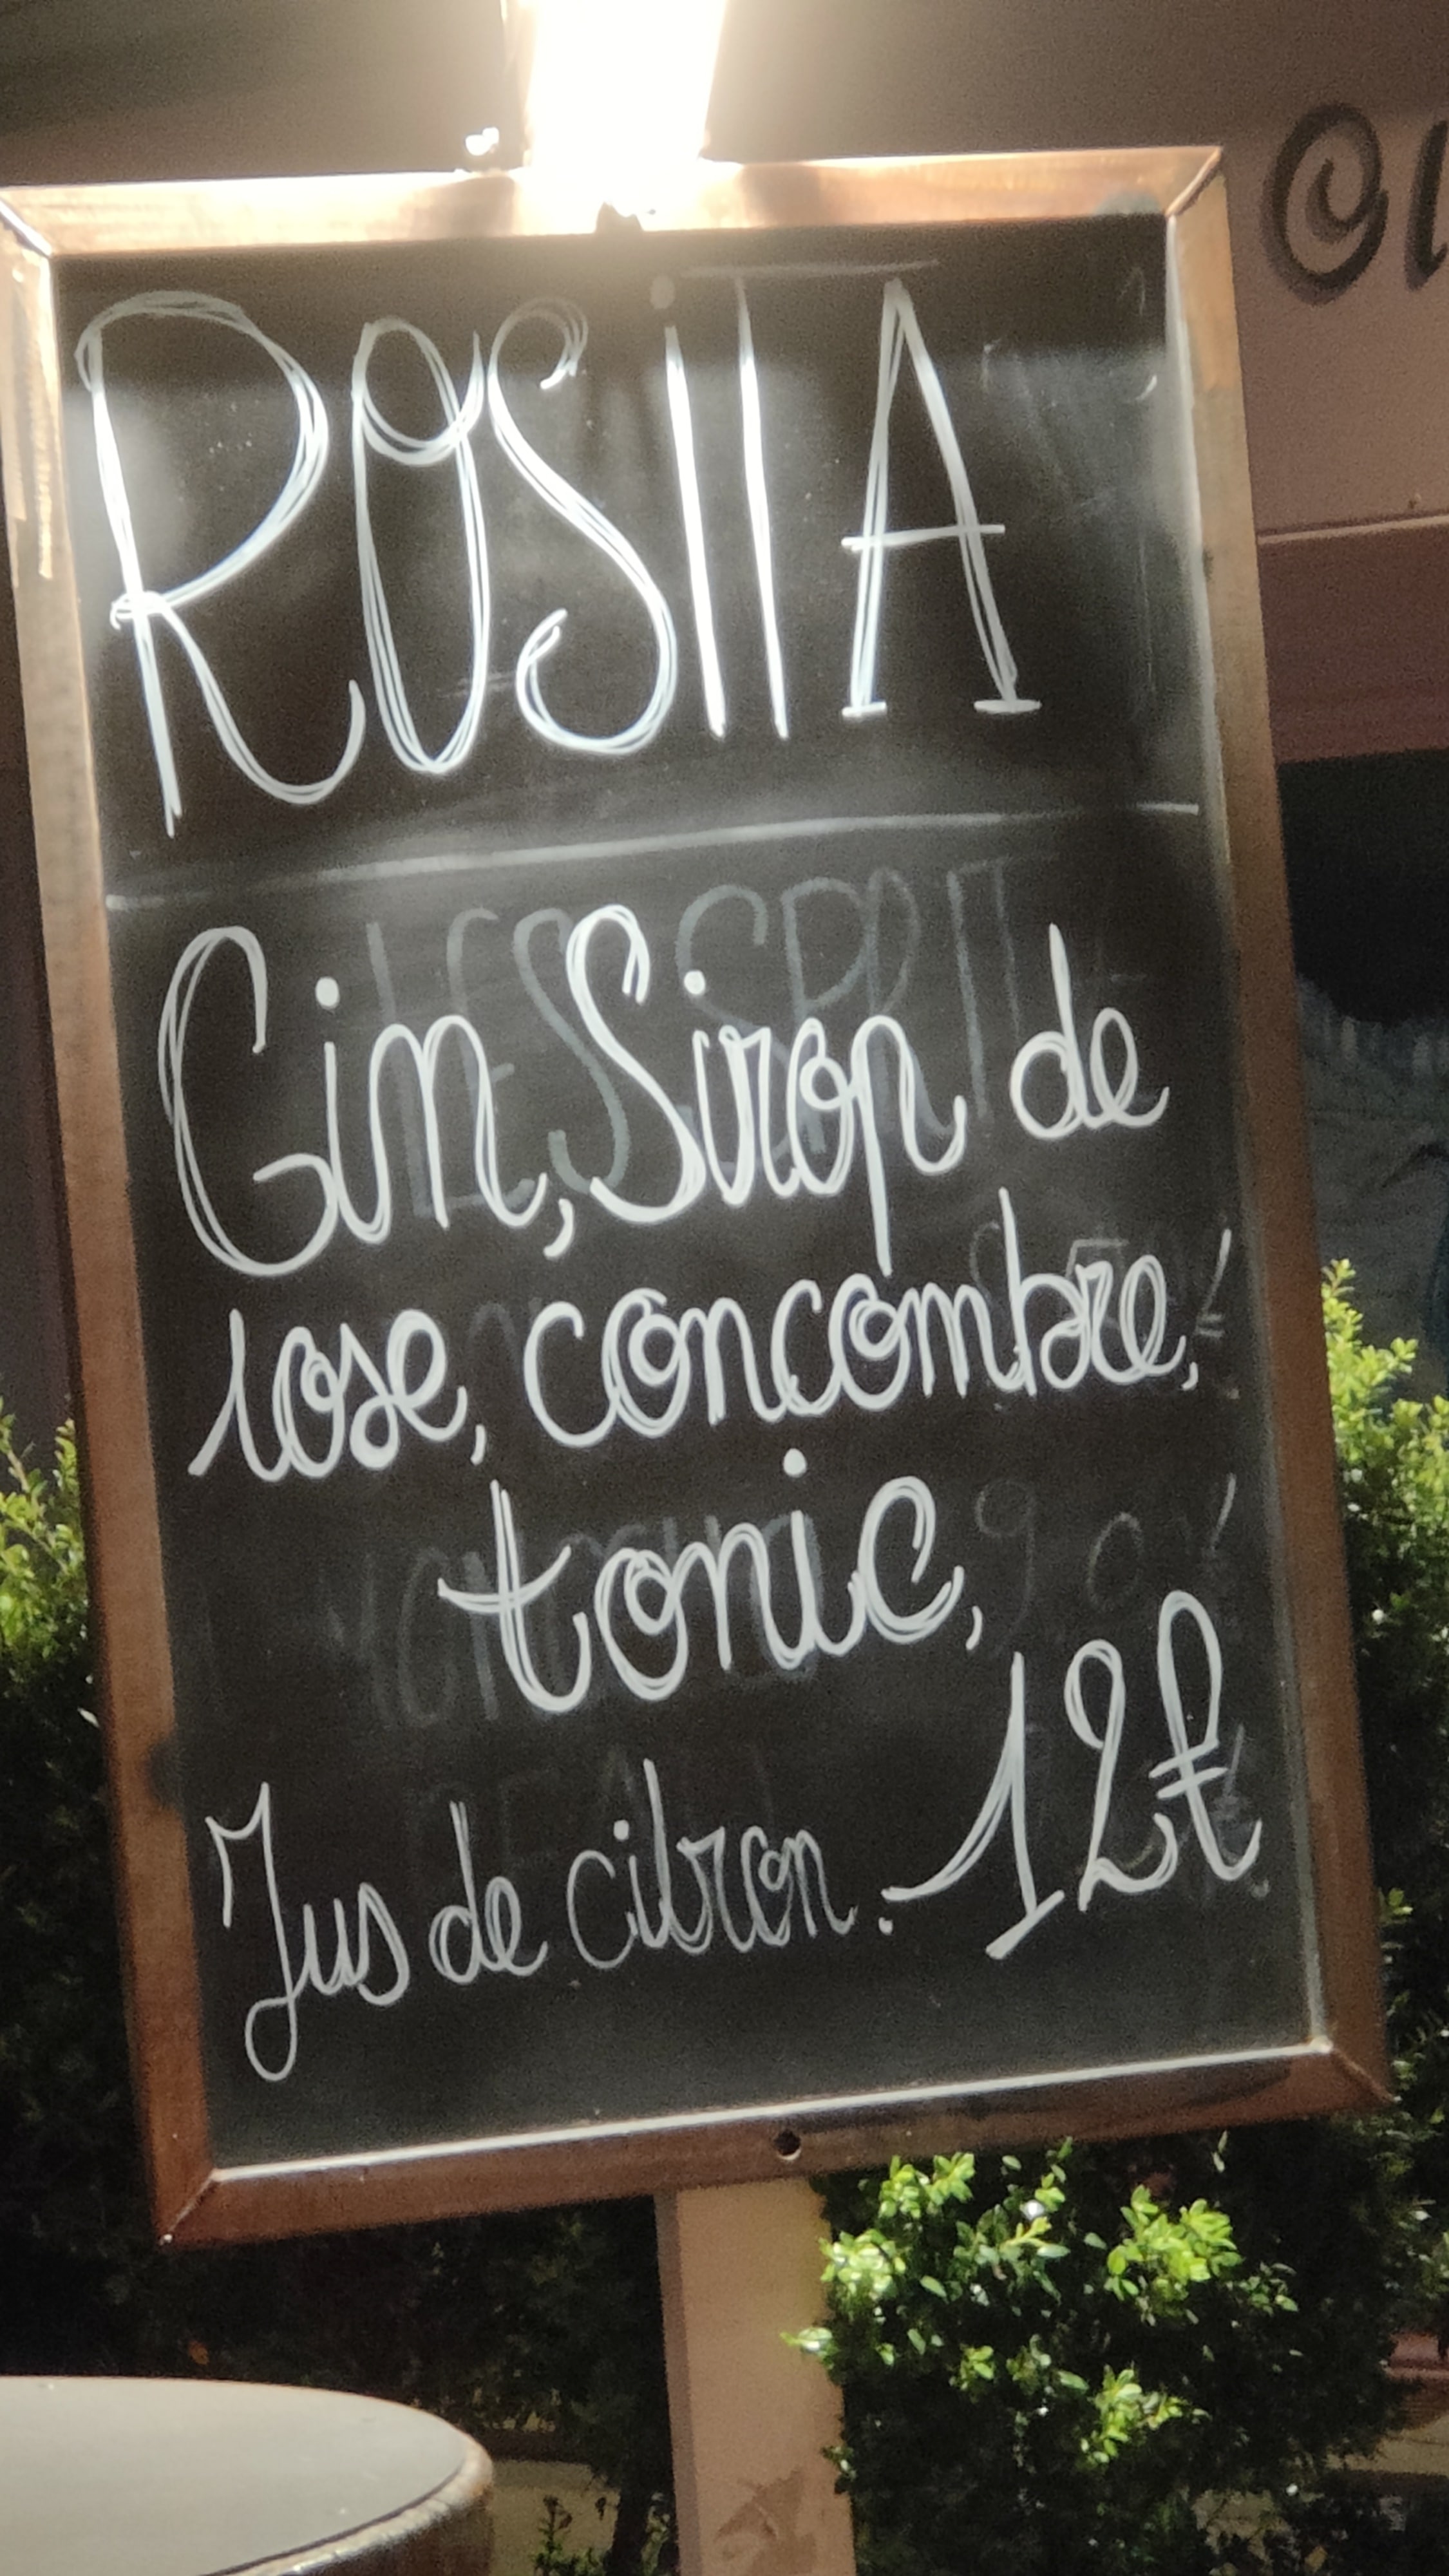 ROSITA
Gin, Sirop de
rose, concombre,
tonic,
Jus de citron. 12€
LES SPRIT